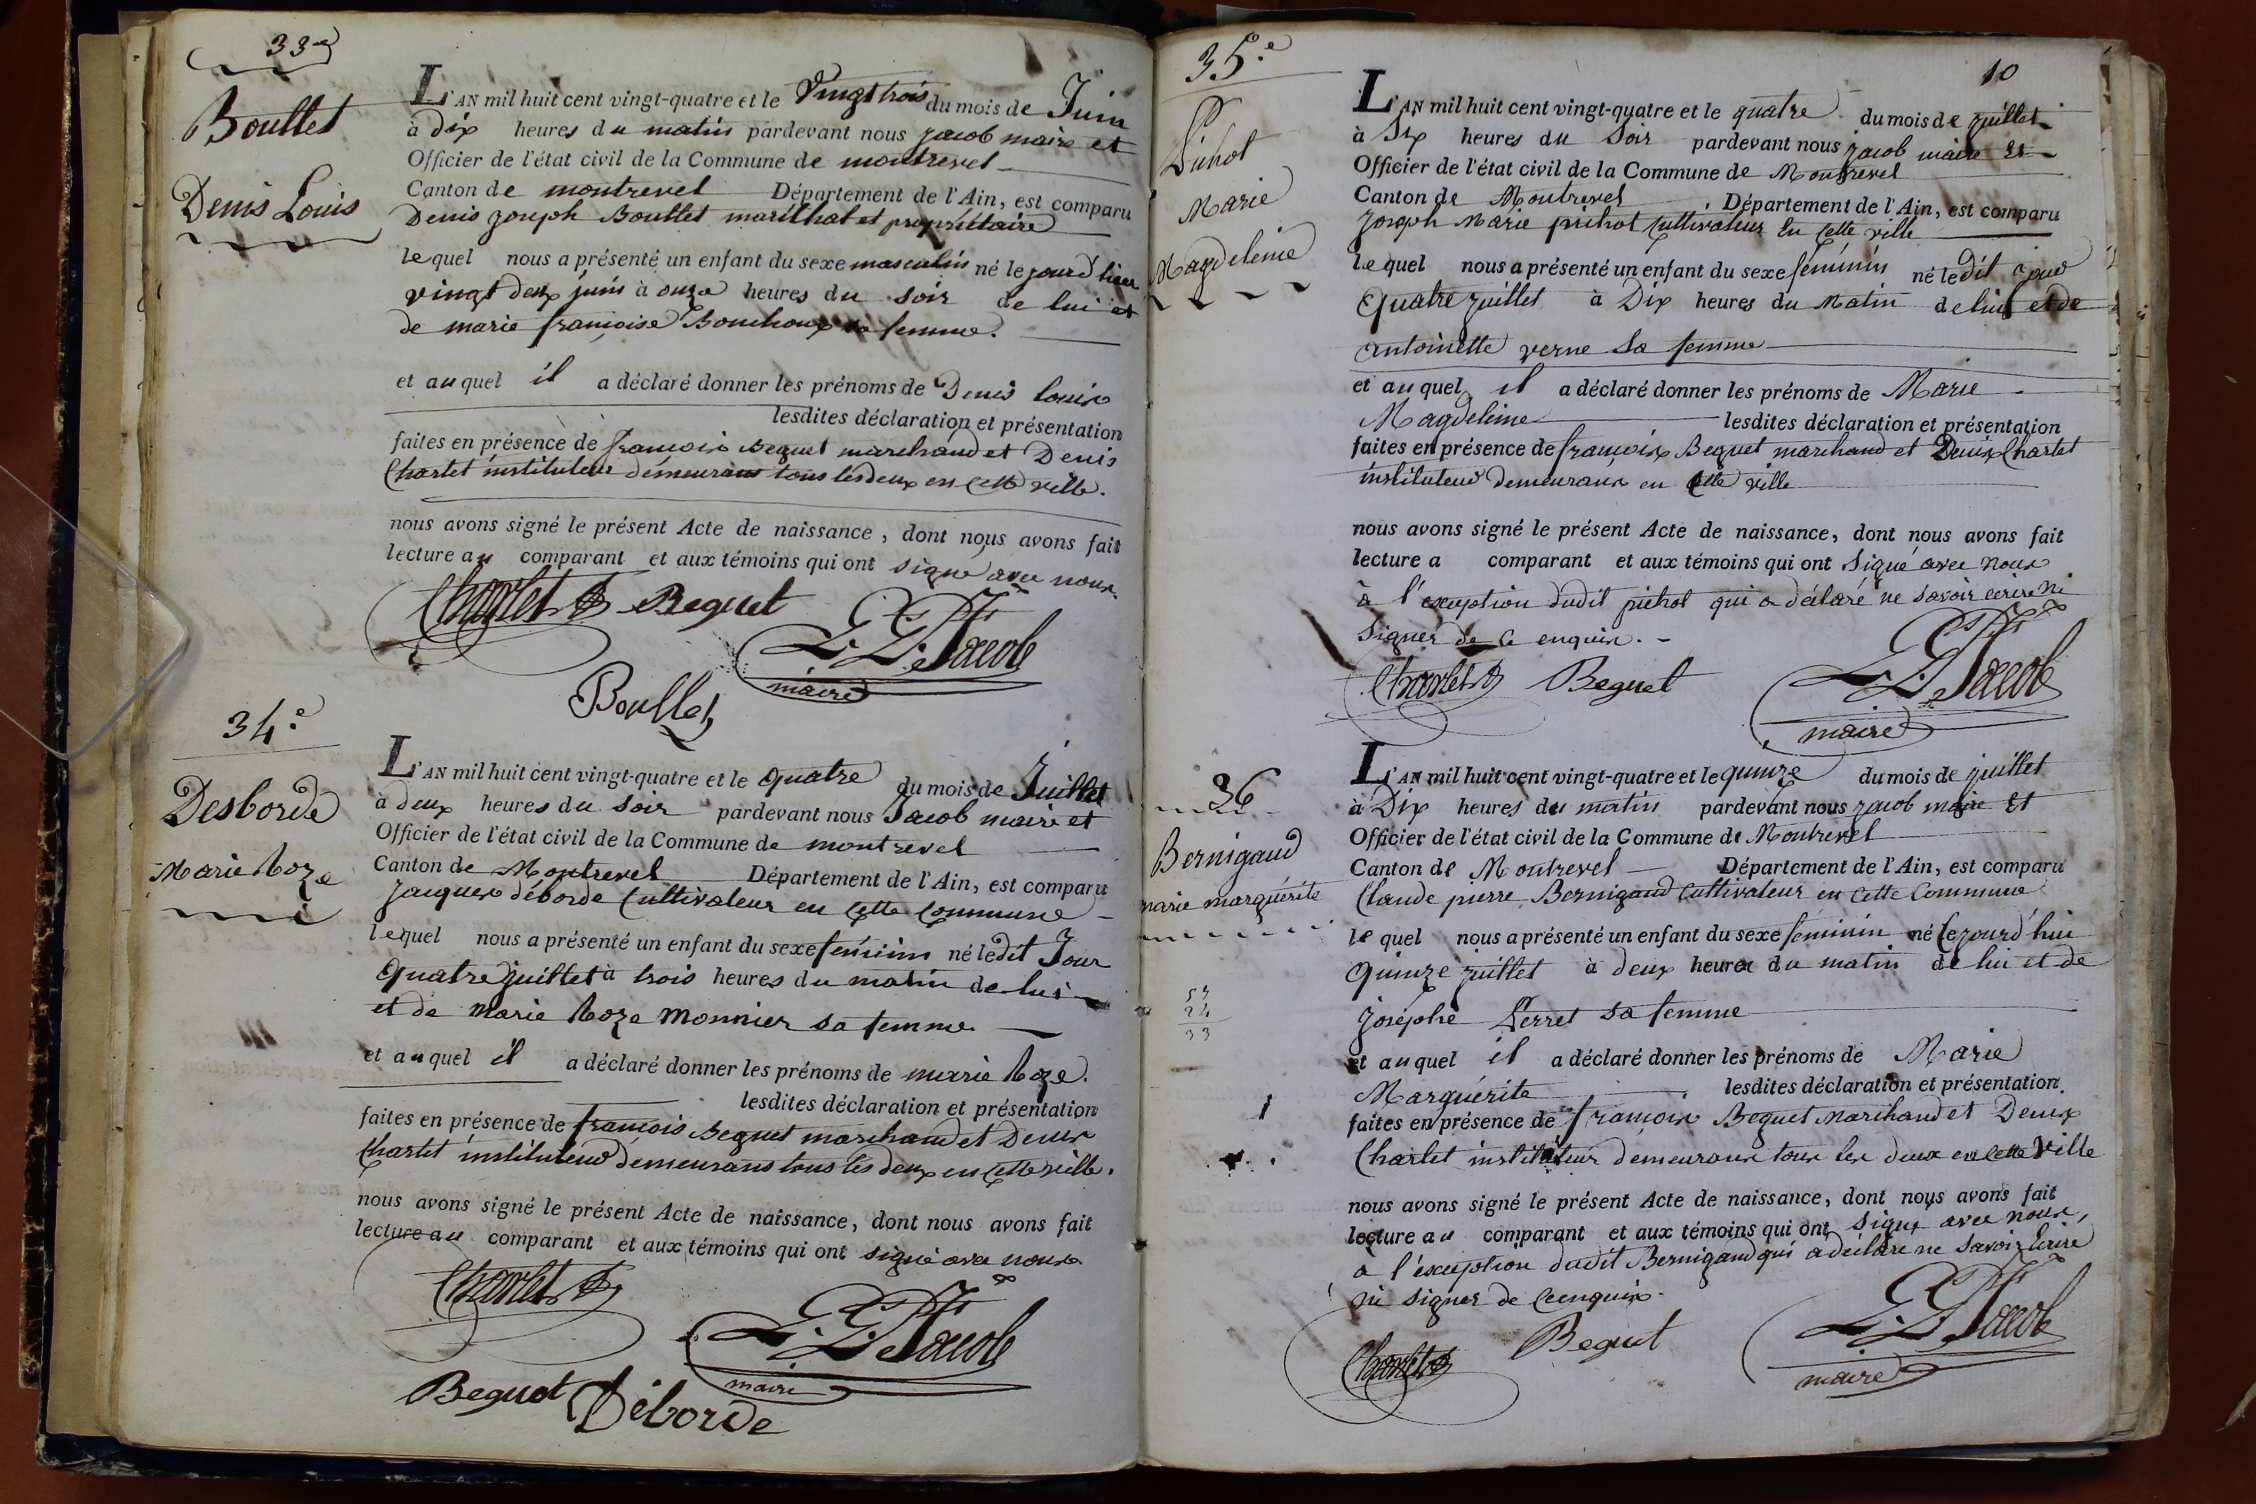 33e
Boullet
Denis Louis
L'AN mil huit cent vingt-quatre et le Vingt trois du mois de Juin
à dix heures du matin pardevant nous jacob maire et
Officier de l'état civil de la Commune de montrevel
Canton de montrevel Département de l'Ain, est comparu
Denis joseph Boullet maréchal et propriétaire
lequel nous a présenté un enfant du sexe masculin né le jour d'hier
vingt deux juin à onze heures du soir de lui et
de marie françoise Bouchoux sa femme.
et auquel il a déclaré donner les prénoms de Denis louis
lesdites déclaration et présentation
faites en présence de françois Beguet marchand et Denis
Charlet instituteur demeurans tous les deux en cette ville.
nous avons signé le présent Acte de naissance, dont nous avons fait
lecture au comparant et aux témoins qui ont signé avec nous
Charlet D Beguet
L. G. Jacob
maire
Boullet
34.e
Desborde
Marie Roze
L'AN mil huit cent vingt-quatre et le quatre du mois de Juillet
à deux heures du soir pardevant nous Jacob maire et
Officier de l'état civil de la Commune de montrevel
Canton de Montrevel Département de l'Ain, est comparu
jacques déborde Cultivateur en cette commune
lequel nous a présenté un enfant du sexe feminin né ledit Jour
quatre juillet à trois heures du matin de lui
et de Marie Roze Monnier sa femme
et auquel il a déclaré donner les prénoms de marie Roze.
lesdites déclaration et présentation
faites en présence de françois Beguet marchand et Denis
Charlet instituteur demeurans tous les deux en cette ville.
nous avons signé le présent Acte de naissance, dont nous avons fait
lecture au comparant et aux témoins qui ont signé avec nous
Charlet D
L. G. Jacob
maire
Beguet Déborde
10
35.e
Pichot
Marie
Magdeleine
L'AN mil huit cent vingt-quatre et le quatre du mois de juillet
à Six heures du Soir pardevant nous jacob maire Et
Officier de l'état civil de la Commune de Montrevel
Canton de Montrevel Département de l'Ain, est comparu
joseph Marie pichot Cultivateur En Cette ville
lequel nous a présenté un enfant du sexe féminin né ledit jour
quatre juillet à Dix heures du Matin de lui et de
antoinette verne Sa femme
et auquel il a déclaré donner les prénoms de Marie
Magdeleine lesdites déclaration et présentation
faites en présence de françois Beguet marchand et Denis Charlet
instituteur demeurans en cette ville
nous avons signé le présent Acte de naissance, dont nous avons fait
lecture a comparant et aux témoins qui ont Signé avec Nous
à l'exception dudit pichot qui a déclaré ne savoir écrire Ni
Signer de ce enquis.
Charlet D Beguet
L. G. Jacob
maire
36
Bernigaud
marie marguérite
57
24
33
L'AN mil huit cent vingt-quatre et le quinze du mois de juillet
à Dix heures du matin pardevant nous jacob maire Et
Officier de l'état civil de la Commune de Montrevel
Canton de Montrevel Département de l'Ain, est comparu
Claude pierre Bernigaud Cultivateur en cette Commune
lequel nous a présenté un enfant du sexe féminin né Cejourd'hui
quinze juillet à deux heures du matin de lui et de
joséphe Perret sa femme
et auquel il a déclaré donner les prénoms de Marie
Marguérite lesdites déclaration et présentation
faites en présence de françois Beguet Marchand et Denis
Charlet instituteur demeurans tous les deux en cette Ville
nous avons signé le présent Acte de naissance, dont nous avons fait
lecture au comparant et aux témoins qui ont signé avec nous,
a l'exception dudit Bernigaud qui a déclaré ne savoir Ecrire
ni signer de ce enquis.
Charlet D Beguet
L. G. Jacob
maire